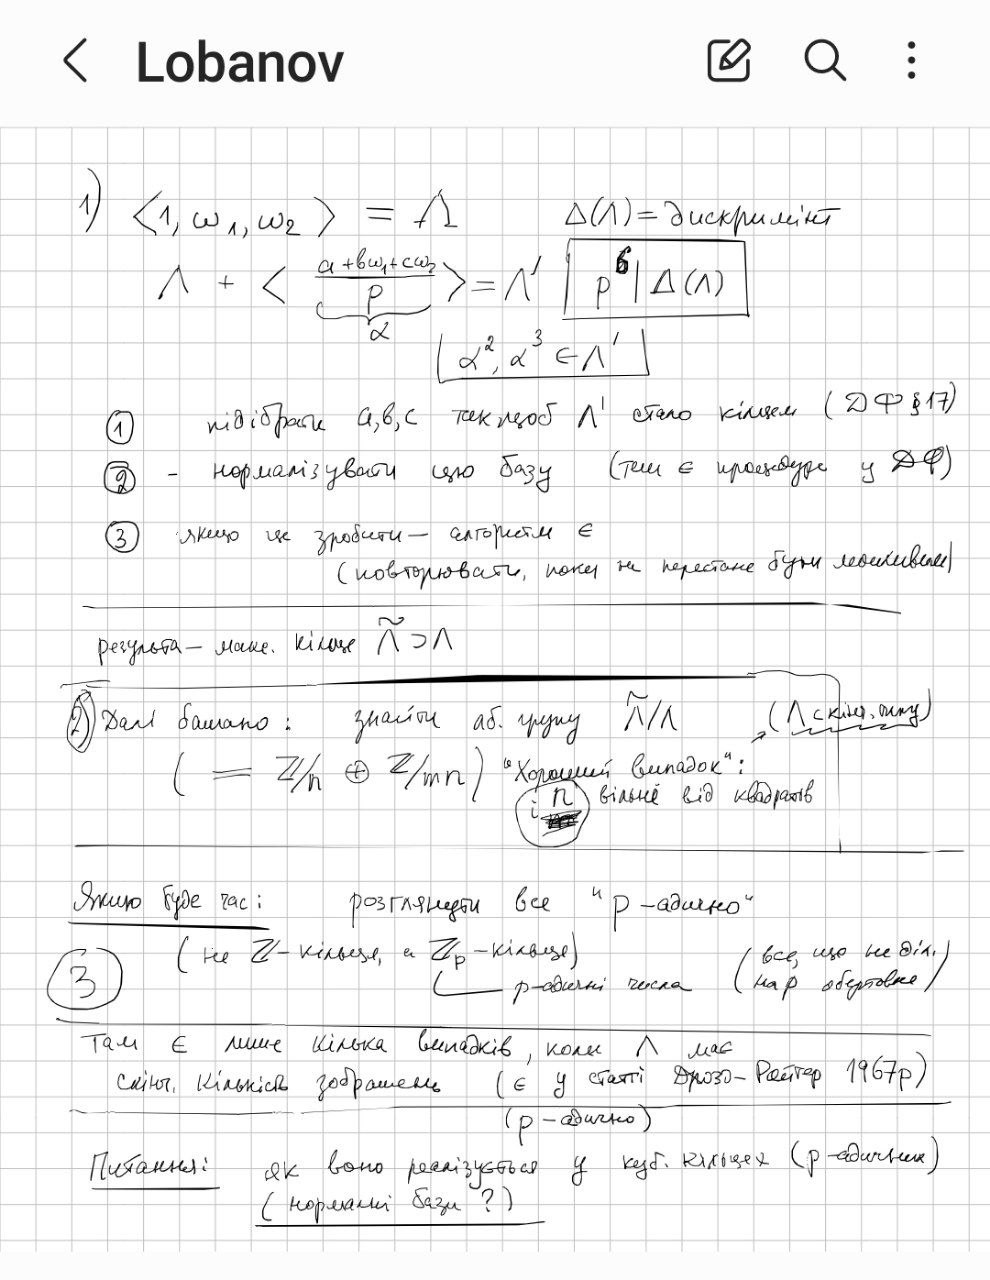 Lobanov
1) <1, ω₁, ω₂> = Λ Δ(Λ) = дискримінт
Λ + < a+bω₁+cω₂ / p > = Λ' p⁶ | Δ(Λ)
α
α², α³ ∈ Λ'
① підібрати a,b,c так щоб Λ' стало кільцем (ДФ §17)
② - нормалізувати цю базу (там є процедура у ДФ)
③ якщо це зробити – алгоритм є
(повторювати, поки не перестане бути можливим)
результа – макс. кільце Λ̃ ⊃ Λ
2) Далі бажано: знайти аб. групу Λ̃/Λ (Λ скінч. типу)
( = ℤ/n ⊕ ℤ/mn) "Хороший випадок":
і n вільне від квадратів
Якщо буде час: розглянути все "p-адично"
3 (не ℤ-кільця, а ℤp-кільця) (все, що не діл.
p-адичні числа на p обертовне)
Там є лише кілька випадків, коли Λ має
скінч. кількість зображень (є у статті Дрозд-Ройтер 1967р)
(p-адично)
Питання: як воно реалізується у куб. кільцях (p-адичних)
(нормальні бази?)